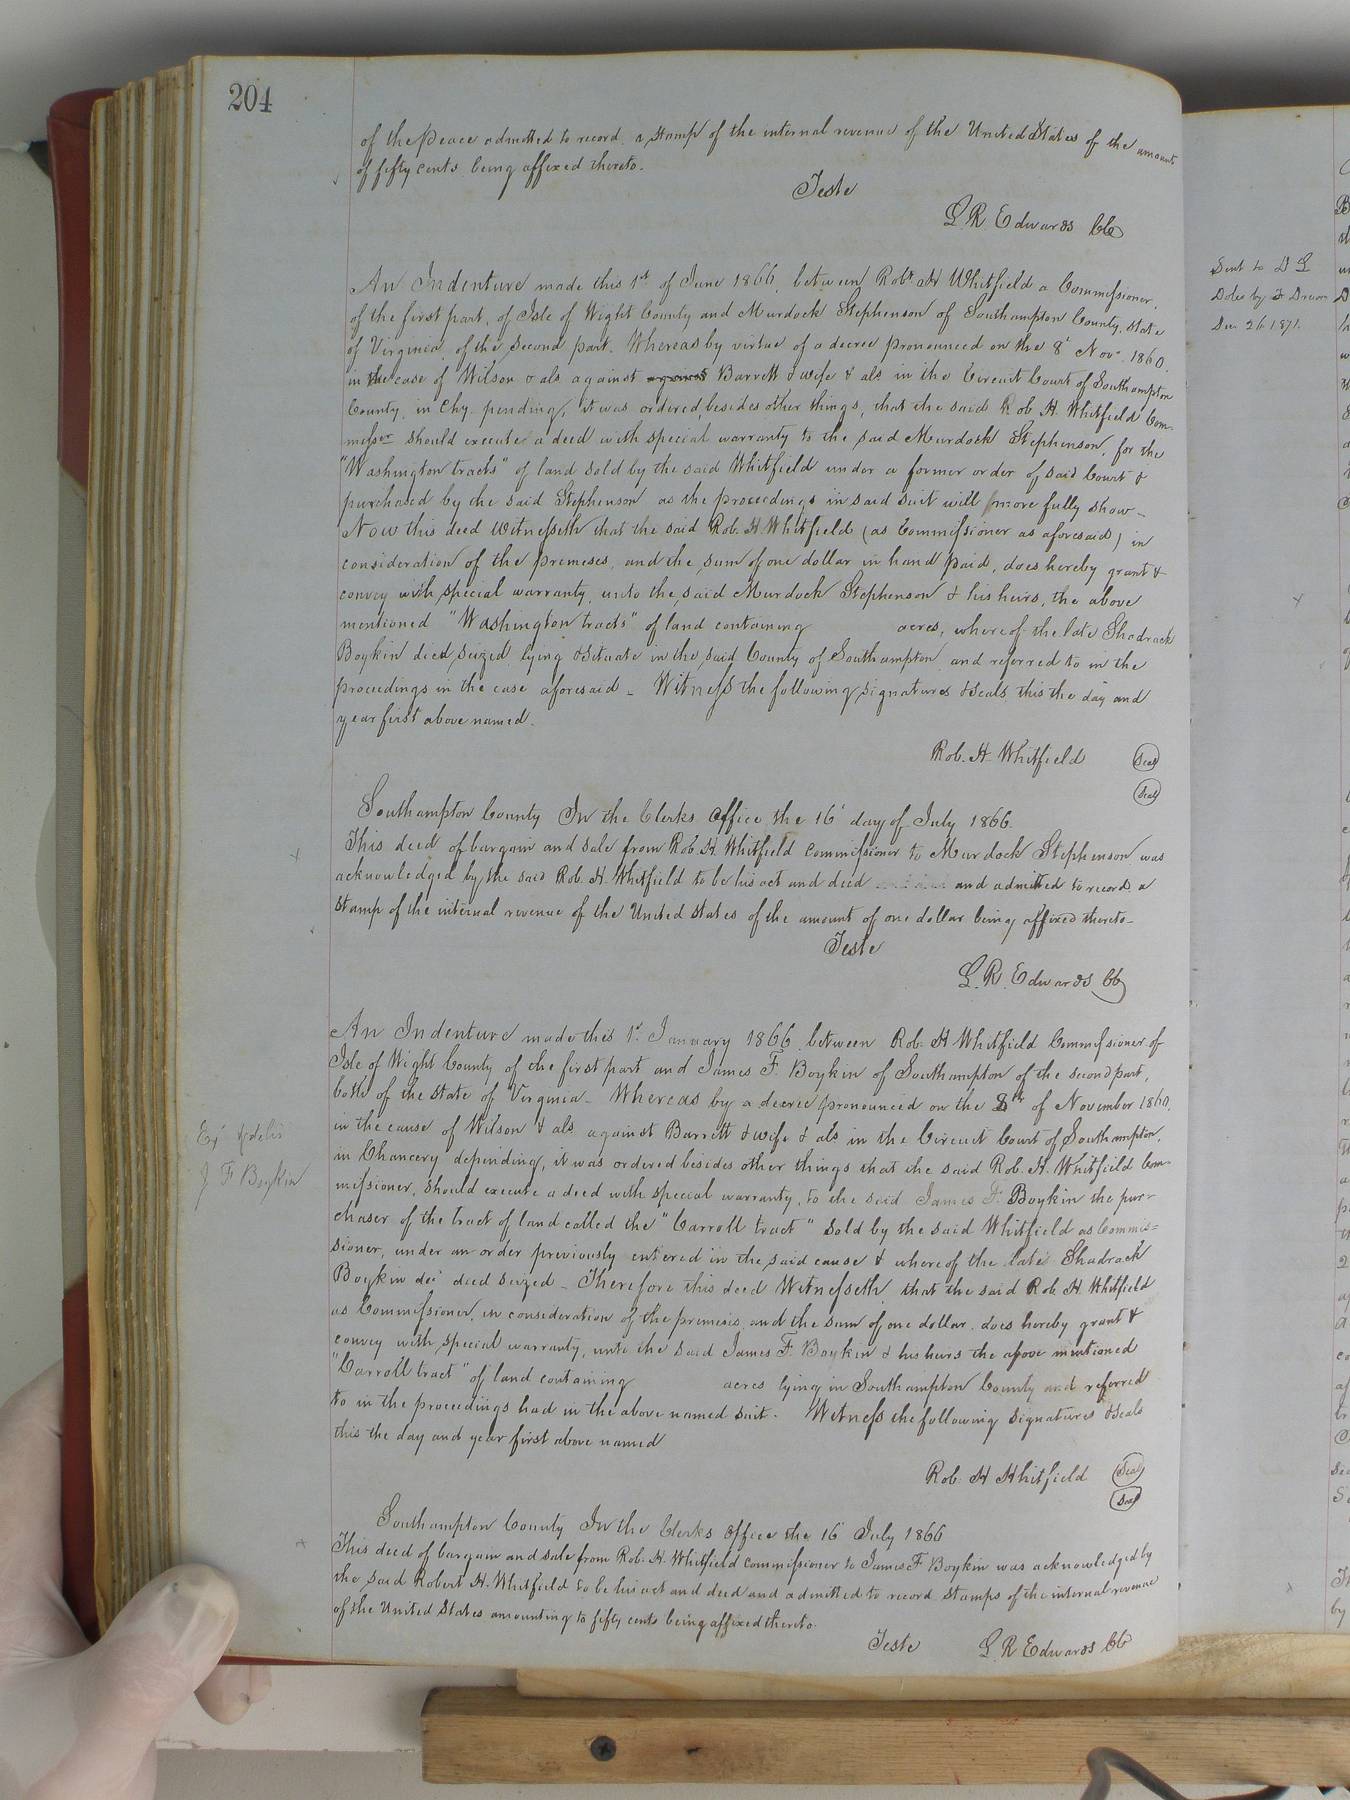 204
of the peace admitted to record a stamp of the internal revenue of the United States of the amount
of fifty cents being affixed thereto.
Teste
L R Edwards CC
An Indenture made this 1st of June 1866, between Robt H Whitfield a Commissioner,
of the first part, of Isle of Wight County and Murdock Stephenson of Southampton County, State
of Virginia, of the second part. Whereas by virtue of a decree pronounced on the 8' Nov. 1860.
in the case of Wilson & als against against Barrett & wife & als in the Circuit Court of Southampton
County, in Chy. pending, it was ordered, besides other things, that the said Rob. H. Whitfield Com-
missr should execute a deed with special warranty to the said Murdock Stephenson, for the
"Washington tracts" of land sold by the said Whitfield under a former order of said Court &
purchased by the said Stephenson as the proceedings in said suit will more fully show -
Now this deed Witnesseth that the said Rob. H. Whitfield (as Commissioner as aforesaid) in
consideration of the premises, and the sum of one dollar in hand paid, does hereby grant &
convey with special warranty, unto the said Murdock Stephenson & his heirs, the above
mentioned "Washington tracts" of land containing acres, whereof the late Shadrack
Boykin died seized lying & situate in the said County of Southampton and referred to in the
proceedings in the case aforesaid - Witness the following signatures & seals this the day and
year first above named.
Rob. H. Whitfield Seal
Seal
Southampton County In the Clerks Office the 16' day of July 1866.
This deed of bargain and sale from Rob. H. Whitfield Commissioner to Murdock Stephenson was
acknowledged by the said Rob. H. Whitfield to be his act and deed and admitted to record a
stamp of the internal revenue of the United States of the amount of one dollar being affixed thereto-
Teste
L. R. Edwards CC
An Indenture made this 1st January 1866 between Rob. H Whitfield Commissioner of
Isle of Wight County of the first part and James F. Boykin of Southampton of the second part,
both of the State of Virginia - Whereas by a decree pronounced on the 8th of November 1860,
in the cause of Wilson & als against Barrett & wife & als in the Circuit Court of Southampton,
in Chancery depending, it was ordered besides other things that the said Rob. H. Whitfield Com-
missioner, should execute a deed with special warranty, to the said James F. Boykin the pur-
chaser of the tract of land called the "Carroll tract" sold by the said Whitfield as Commis=
sioner, under an order previously entered in the said cause & whereof the late Shadrack
Boykin dec' died seized - Therefore this deed Witnesseth, that the said Rob. H. Whitfield
as Commissioner, in consideration of the premises, and the sum of one dollar, does hereby grant &
convey with special warranty, unto the said James F. Boykin & his heirs the above mentioned
"Carroll tract" of land containing acres lying in Southampton County and referred
to in the proceedings had in the above named suit. Witness the following signatures & seals
this the day and year first above named
Rob. H Whitfield Seal
Seal
Southampton County In the Clerks Office the 16' July 1866
This deed of bargain and sale from Rob. H. Whitfield commissioner to James F Boykin was acknowledged by
the said Robert H. Whitfield to be his act and deed and admitted to record stamps of the internal revenue
of the United States amounting to fifty cents being affixed thereto.
Teste L. R. Edwards CC
Exd & deld
J F Boykin
Sent to
Dec 26 1871.